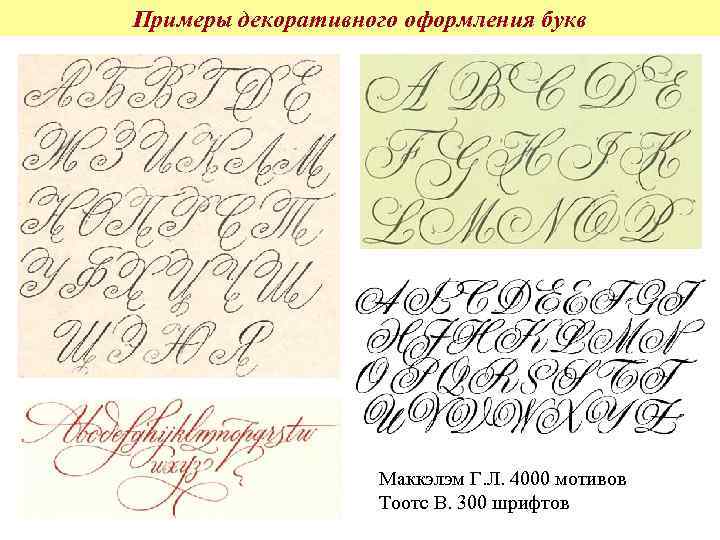 Примеры декоративного оформления букв
А Б В Г Д Е
Ж З И К Л М
Н О П Р С Т
У Ф Х Ц Ч Ш
Щ Э Ю Я
A B C D E
F G H I K
L M N O P
A B C D E E F G I
H J H K L M N
O P Q R S S T T
U V V W X Y Z
Abcdefghijklmnopqrstu
wxyz
Маккэлэм Г. Л. 4000 мотивов
Тоотс В. 300 шрифтов